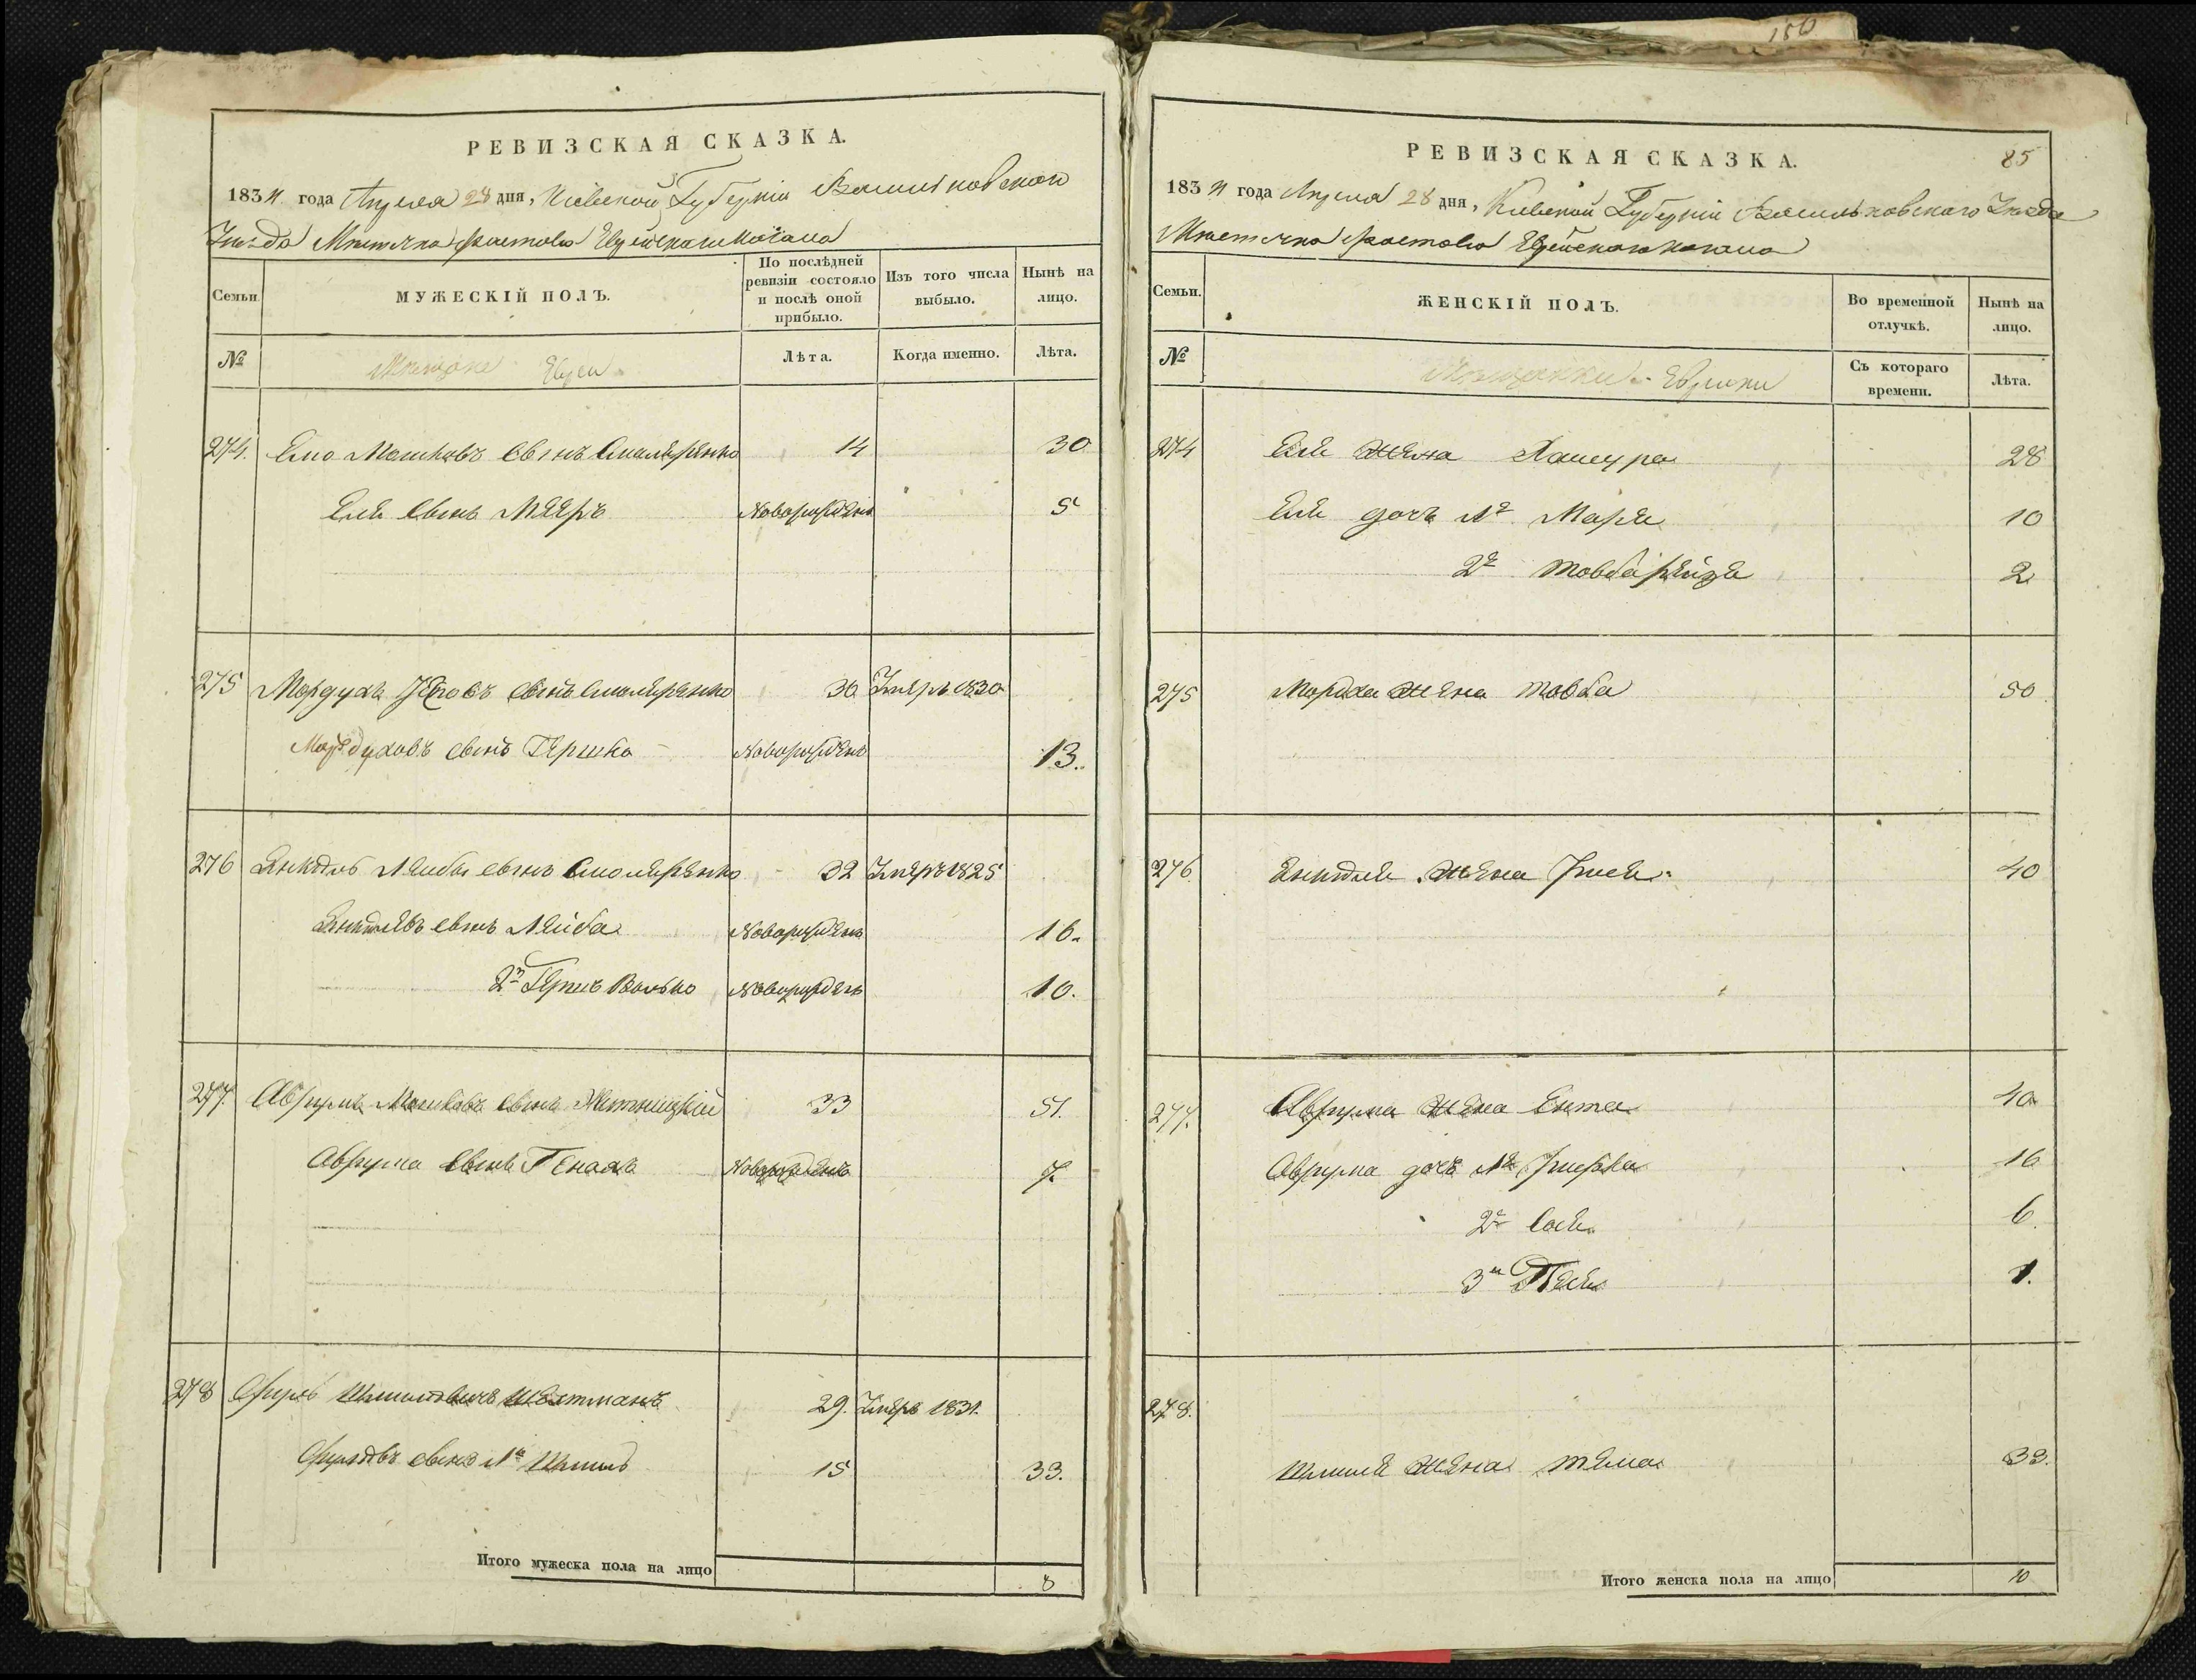 150
РЕВИЗСКАЯ СКАЗКА.
1834 года Апреля 28 дня, Киевской Губерніи Васильковскаго
Уезда Местечка Фастова Еврейскаго Кагала
Семьи.
МУЖЕСКІЙ ПОЛЪ.
По послѣдней ревизіи состояло и послѣ оной прибыло.
Изъ того числа выбыло.
Нынѣ на лицо.
№
Мещане Евреи
Лѣта.
Когда именно.
Лѣта.
274. Сынъ Смоляренко 14 30
Еля Сынъ Мееръ Новорожденъ 5
275 Мордухъ сынъ Смоляренко 36 Умеръ 1830
Мордуховъ сынъ Гершко Новорожденъ 13.
276 Янкель Лейбы сынъ Смоляренко 32 Умеръ 1825
сынъ Лейба Новорожденъ 16.
2й Герш Волько Новорожденъ 10.
277. Аврумъ Мошковъ сынъ Житницкій 33 51.
Аврума сынъ Новорожденъ 7.
278 Фроимъ 29. Умеръ 1831.
сынъ 1й Шмиль 15 33.
Итого мужеска пола на лицо 8
РЕВИЗСКАЯ СКАЗКА.
85
1834 года Апреля 28 дня, Киевской Губерніи Васильковскаго Уезда
Местечка Фастова Еврейскаго кагала
Семьи.
ЖЕНСКІЙ ПОЛЪ.
Во временной отлучкѣ.
Нынѣ на лицо.
№
Мещанки Еврейки
Съ котораго времени.
Лѣта.
274 Еля жена 28
Еля дочь 1я Марья 10
2я Товба Рейзя 2
275 Мордха жена Товба 50
276 жена Фрося 40
277. Аврума жена Ента 40
Аврума дочь 1я 16
2я Сося 6.
3я Песя 1.
278.
Шмиля жена Тема 33.
Итого женска пола на лицо 10